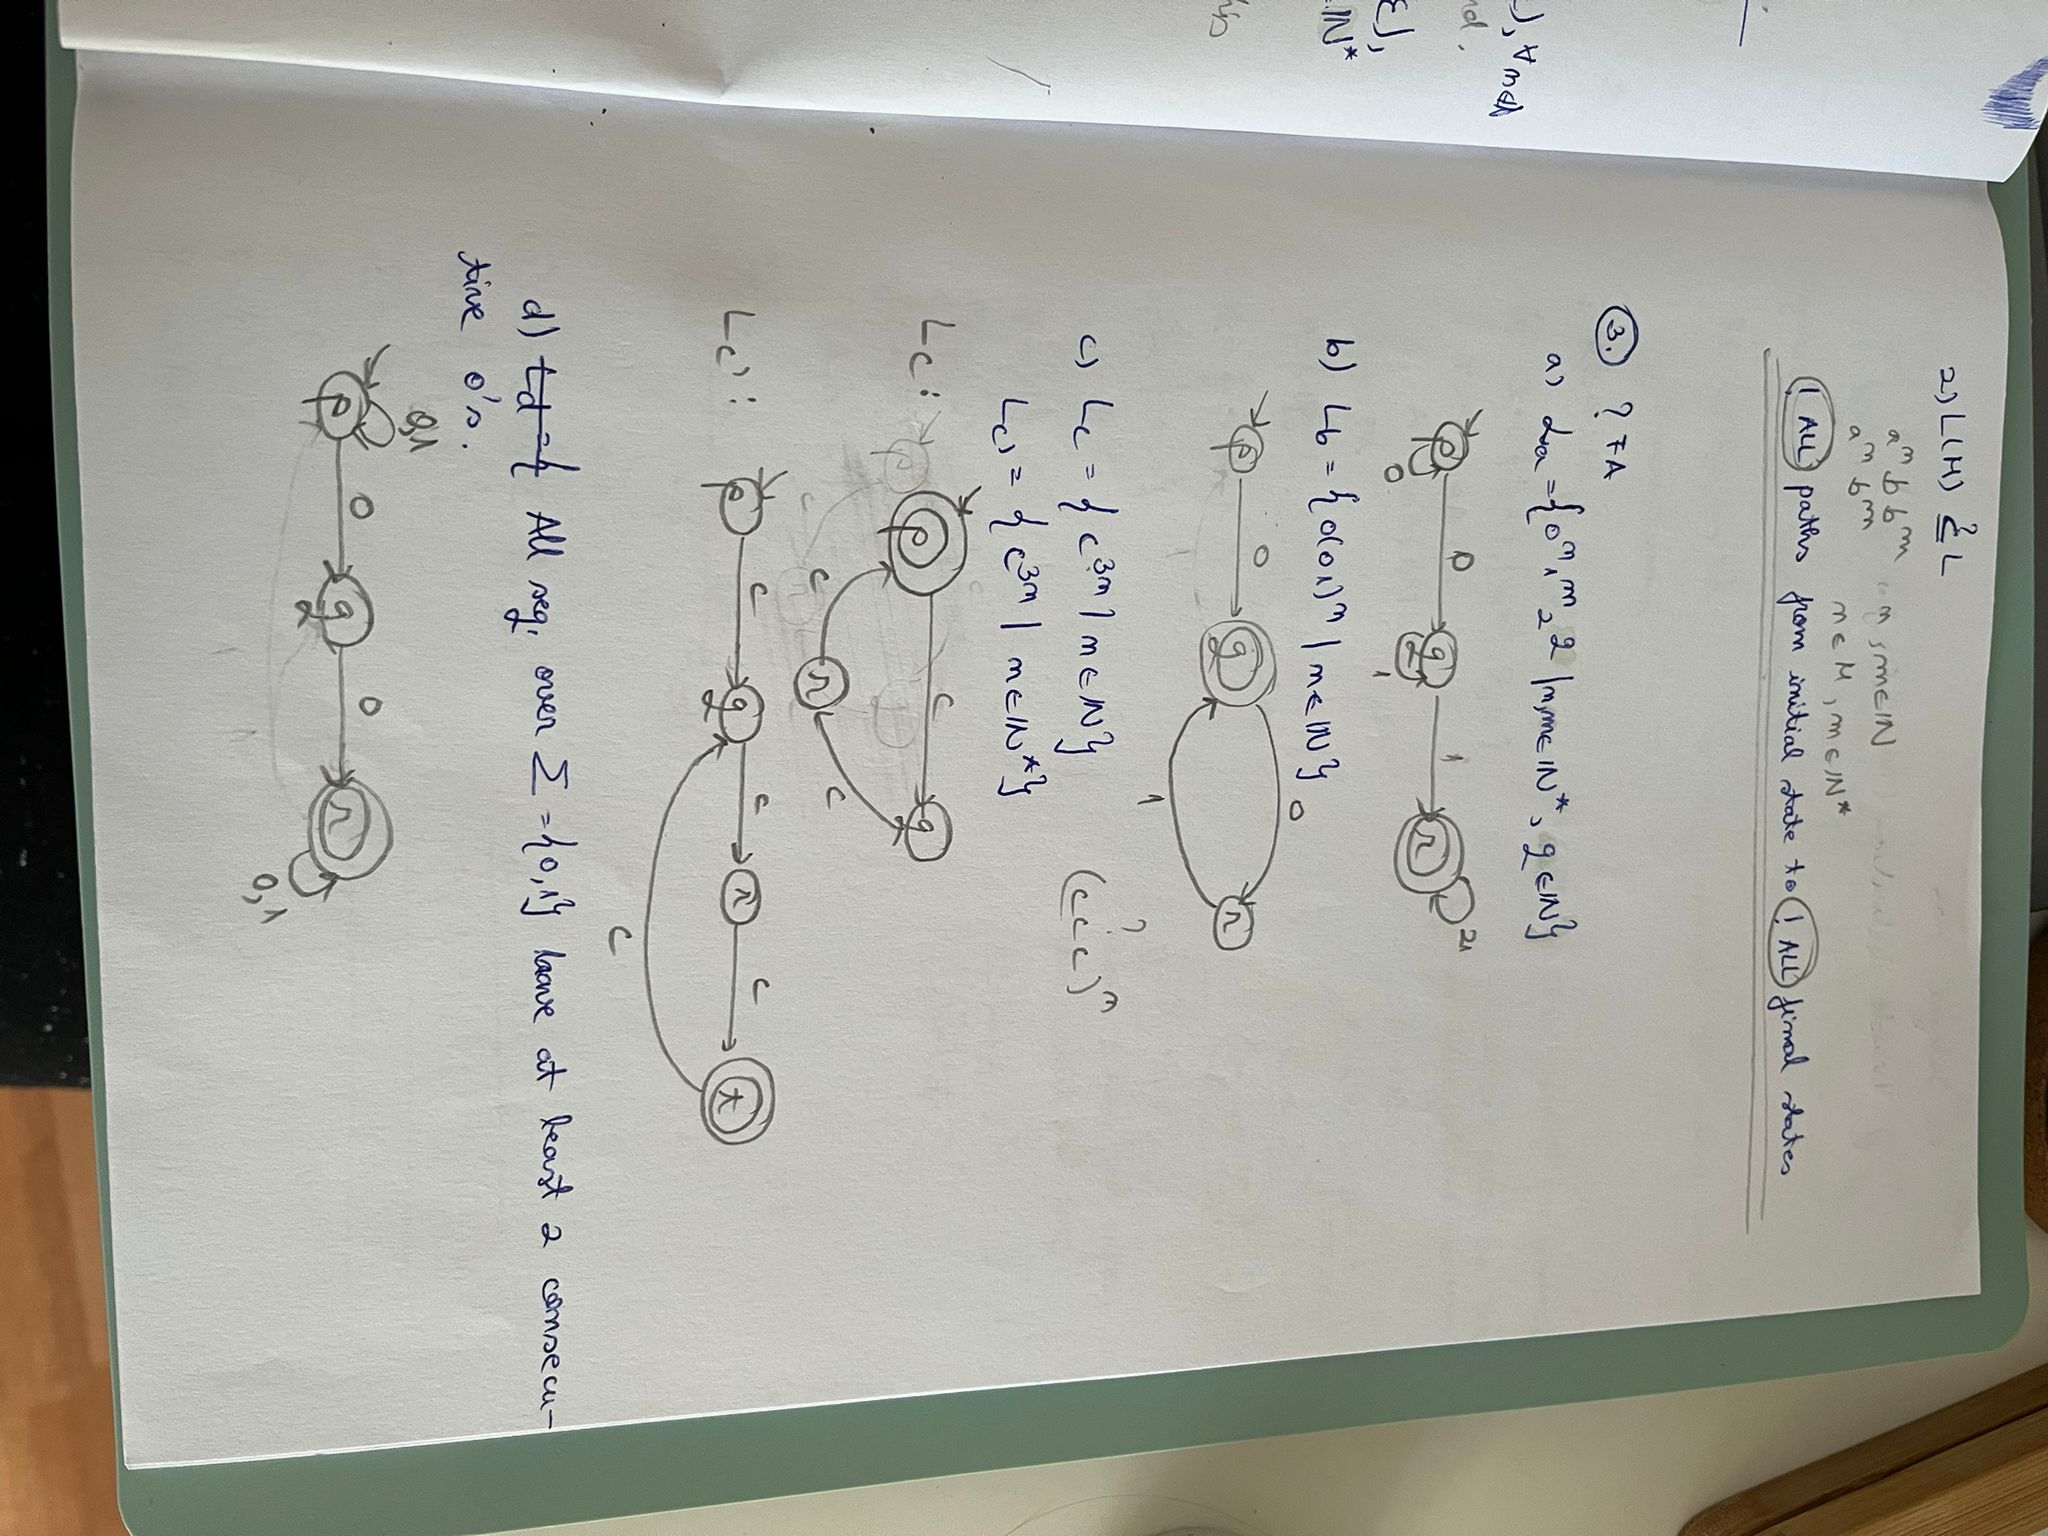 2) L(M) ⊆? L
aⁿ b bᵐ n, m∈ℕ
aⁿ bᵐ n∈ℕ, m∈ℕ*
! ALL paths from initial state to ! ALL final states
3. ? FA
a) La = {0ⁿ 1ᵐ 2^q | n,m∈ℕ*, q∈ℕ}
p 0 q 1 r 2
0 1
b) Lb = {0(01)ⁿ | n∈ℕ}
0
p 0 q r
1
c) Lc = {c³ⁿ | n∈ℕ} (ccc)ⁿ ?
Lc' = {c³ⁿ | n∈ℕ*}
Lc: p c q
c r c
Lc': p c q c r c t
c
d) All seq. over Σ = {0,1} have at least 2 consecu-
tive 0's.
0,1
p 0 q 0 r
0,1
), ∀n∈ℕ
nd.
ε),
∈ℕ*